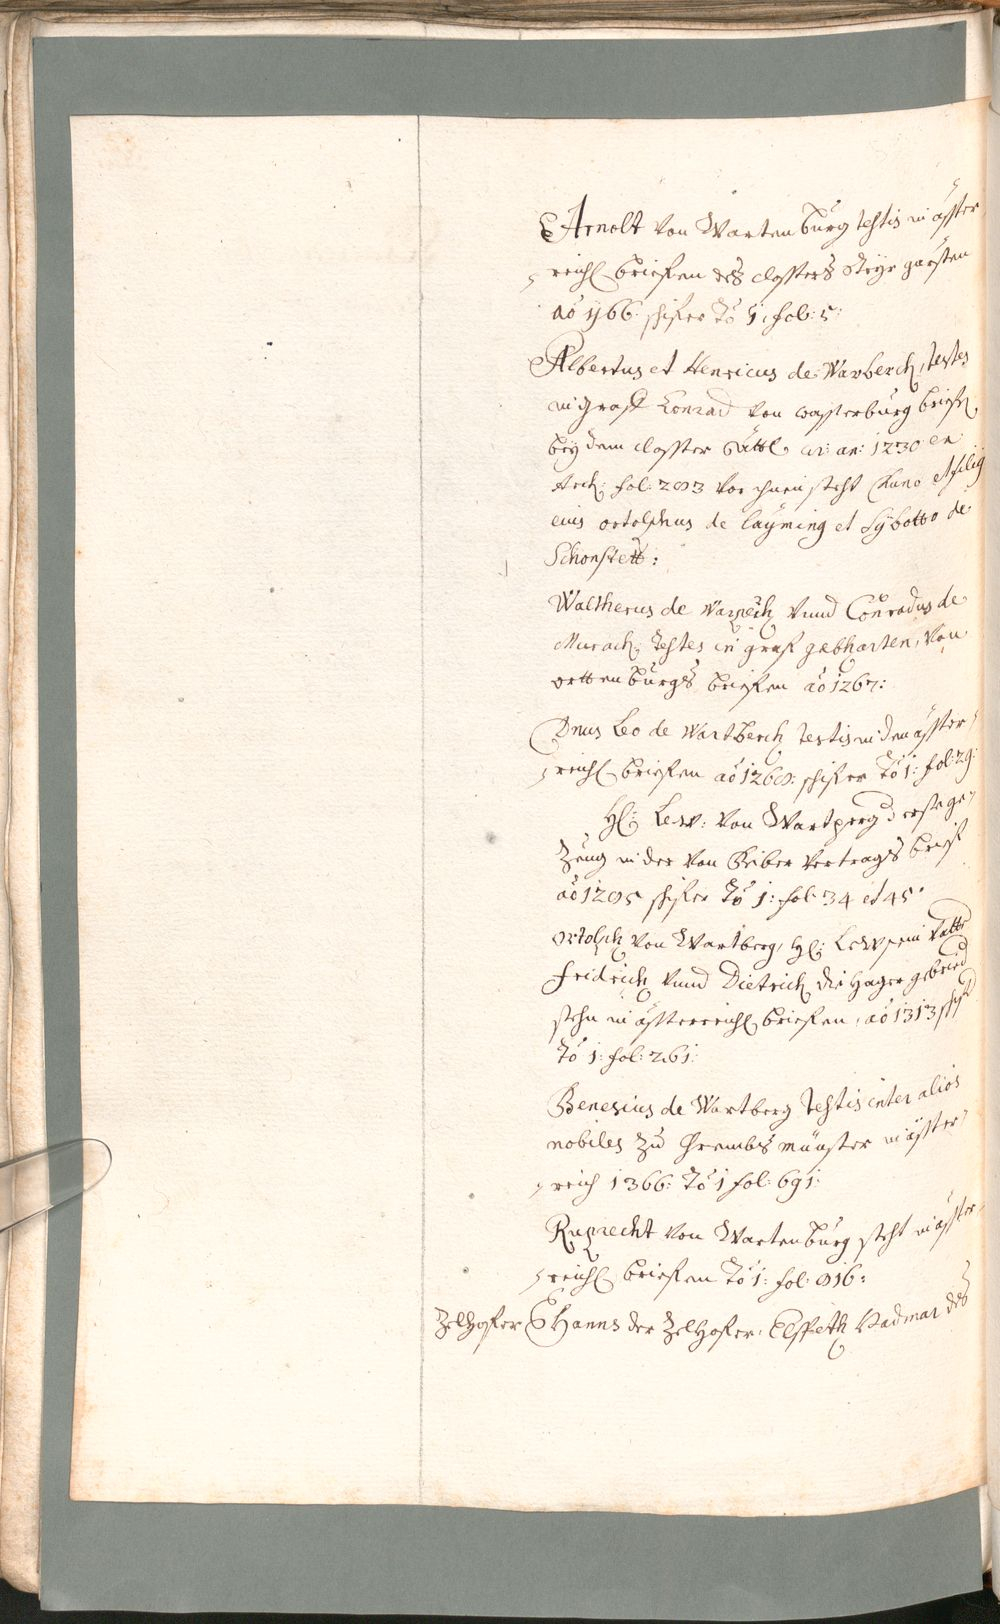 Arnolt von Wartenburg testis in össter,
reich briefen des closters Steyr garsten
aō 1166: schifer To 1: fol: 5:
Albertus et Henricus de Warberch, testes
in graff Conrad von wasserburg briefe,
bey dem closter Ättl cir: an: 1230 en
Arch: fol: 203 vor ihnen steht Chuno et filiꝯ
eius ortolphus de Layming et Sybotto de
Schonstett:
Waltherus de Warperch vnnd Conradus de
Murach, testes in graf gebharten, von
ortenburgs briefen aō 1267:
Dnus Leo de Wartberch testis in den össter,
reich briefen aō 1260: schifer To 1: fol: 29:
H: Lew: von Wartperg d erste ge,
zeug in der von Biber vertrags brief
aō 1295 schifer To 1: fol 34 et 45
ortolph von Wartberg, H: Lew sein vatter
Fridrich vnnd Dietrich die Hager gebried
stehn in össterreich briefen, aō 1313 schif
To 1: fol: 261:
Benesius de Wartberg testis inter alios
nobiles zu Crembs münster in össter,
reich 1366: To 1 fol: 691:
Ruprecht von Wartenburg steht in össter,
reich briefen To 1: fol: 916:
Zelhofer Hanns der Zelhofer, Elspeth Vadmar des